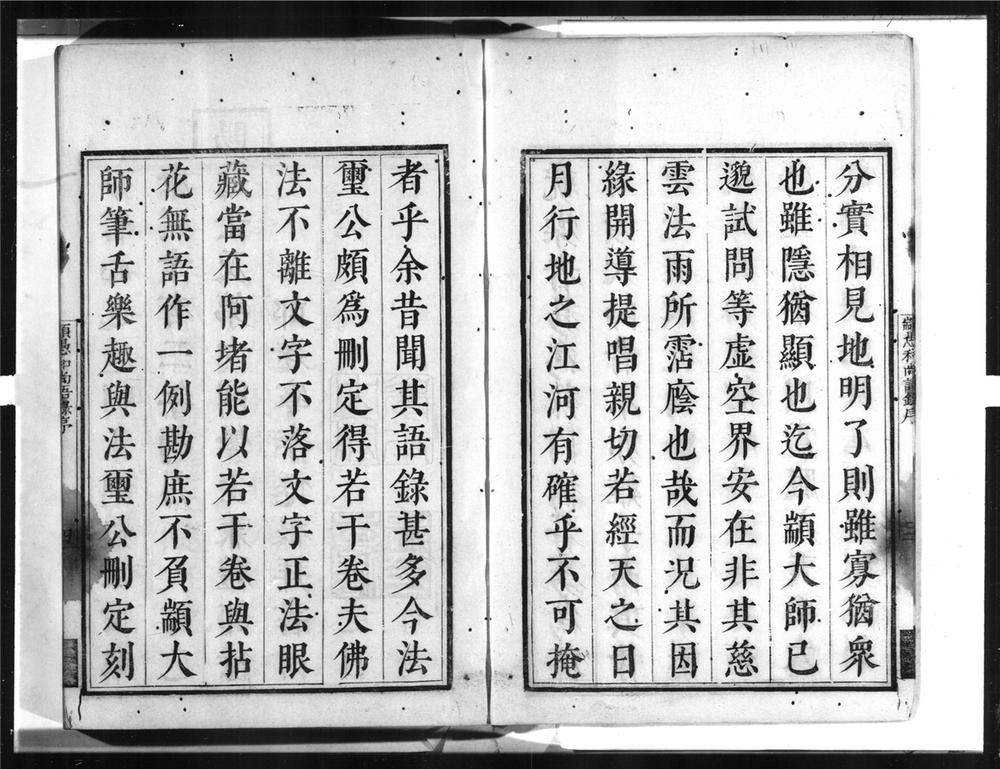 分實相見地明了則雖寡猶衆
也雖隱猶顯也迄今顓大師已
邈試問等虛空界安在非其慈
雲法雨所霑廕也哉而况其因
緣開導提唱親切若經天之日
月行地之江河有確乎不可掩
者乎余昔聞其語錄甚多今法
璽公頗爲刪定得若干卷夫佛
法不離文字不落文字正法眼
藏當在阿堵能以若干卷與拈
花無語作一例勘庶不負顓大
師筆舌樂趣與法璽公刪定刻